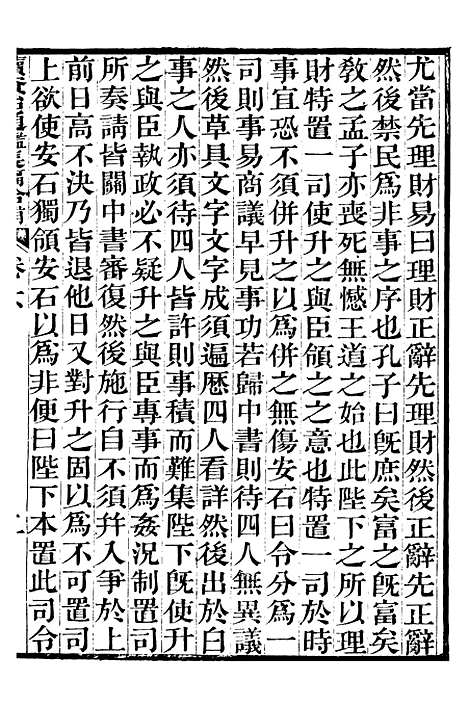 尤當先理財易曰理財正辭先理財然後正辭先正辭
然後禁民爲非事之序也孔子曰旣庶矣富之旣富矣
敎之孟子亦喪死無憾王道之始也此陛下之所以理
財特置一司使升之與臣領之之意也特置一司於時
事宜恐不須併升之以爲併之無傷安石曰令分爲一
司則事易商議早見事功若歸中書則待四人無異議
然後草具文字文字成須遍歷四人看詳然後出於白
事之人亦須待四人皆許則事積而難集陛下旣使升
之與臣執政必不疑升之與臣專事而爲姦況制置司
所奏請皆關中書審復然後施行自不須幷入爭於上
前日高不決乃皆退他日又對升之固以爲不可置司
上欲使安石獨領安石以爲非便曰陛下本置此司令
續資治通鑑長編拾補 卷六